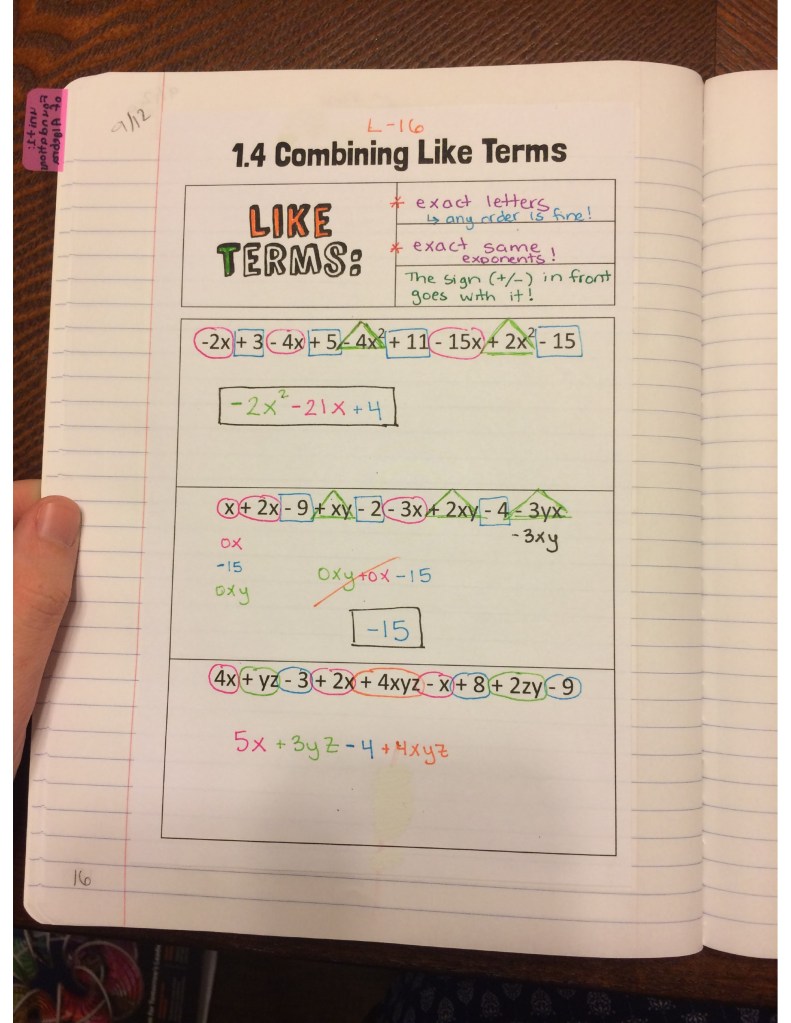 Unit 1:
Foundations
of Algebra
9/12
L-16
1.4 Combining Like Terms
LIKE
TERMS:
* exact letters
↳ any order is fine!
* exact same
exponents!
The sign (+/-) in front
goes with it!
-2x + 3 - 4x + 5 - 4x² + 11 - 15x + 2x² - 15
-2x² -21x +4
x + 2x - 9 + xy - 2 - 3x + 2xy - 4 - 3yx
-3xy
0x
-15
0xy
0xy+0x -15
-15
4x + yz - 3 + 2x + 4xyz - x + 8 + 2zy - 9
5x +3yz -4 +4xyz
16